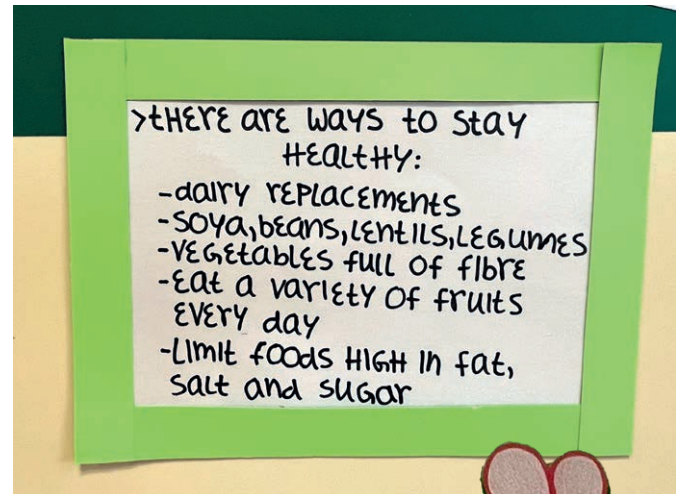 >tHErE arE ways to stay
HEaLtHy:
-daIry rEPLacEmEnts
-soya,bEans,LEntILs,LEGumEs
-vEGEtabLEs fuLL of fIbrE
-Eat a varIEty of fruIts
EvEry day
-LImIt foods HIGH In fat,
saLt and suGar